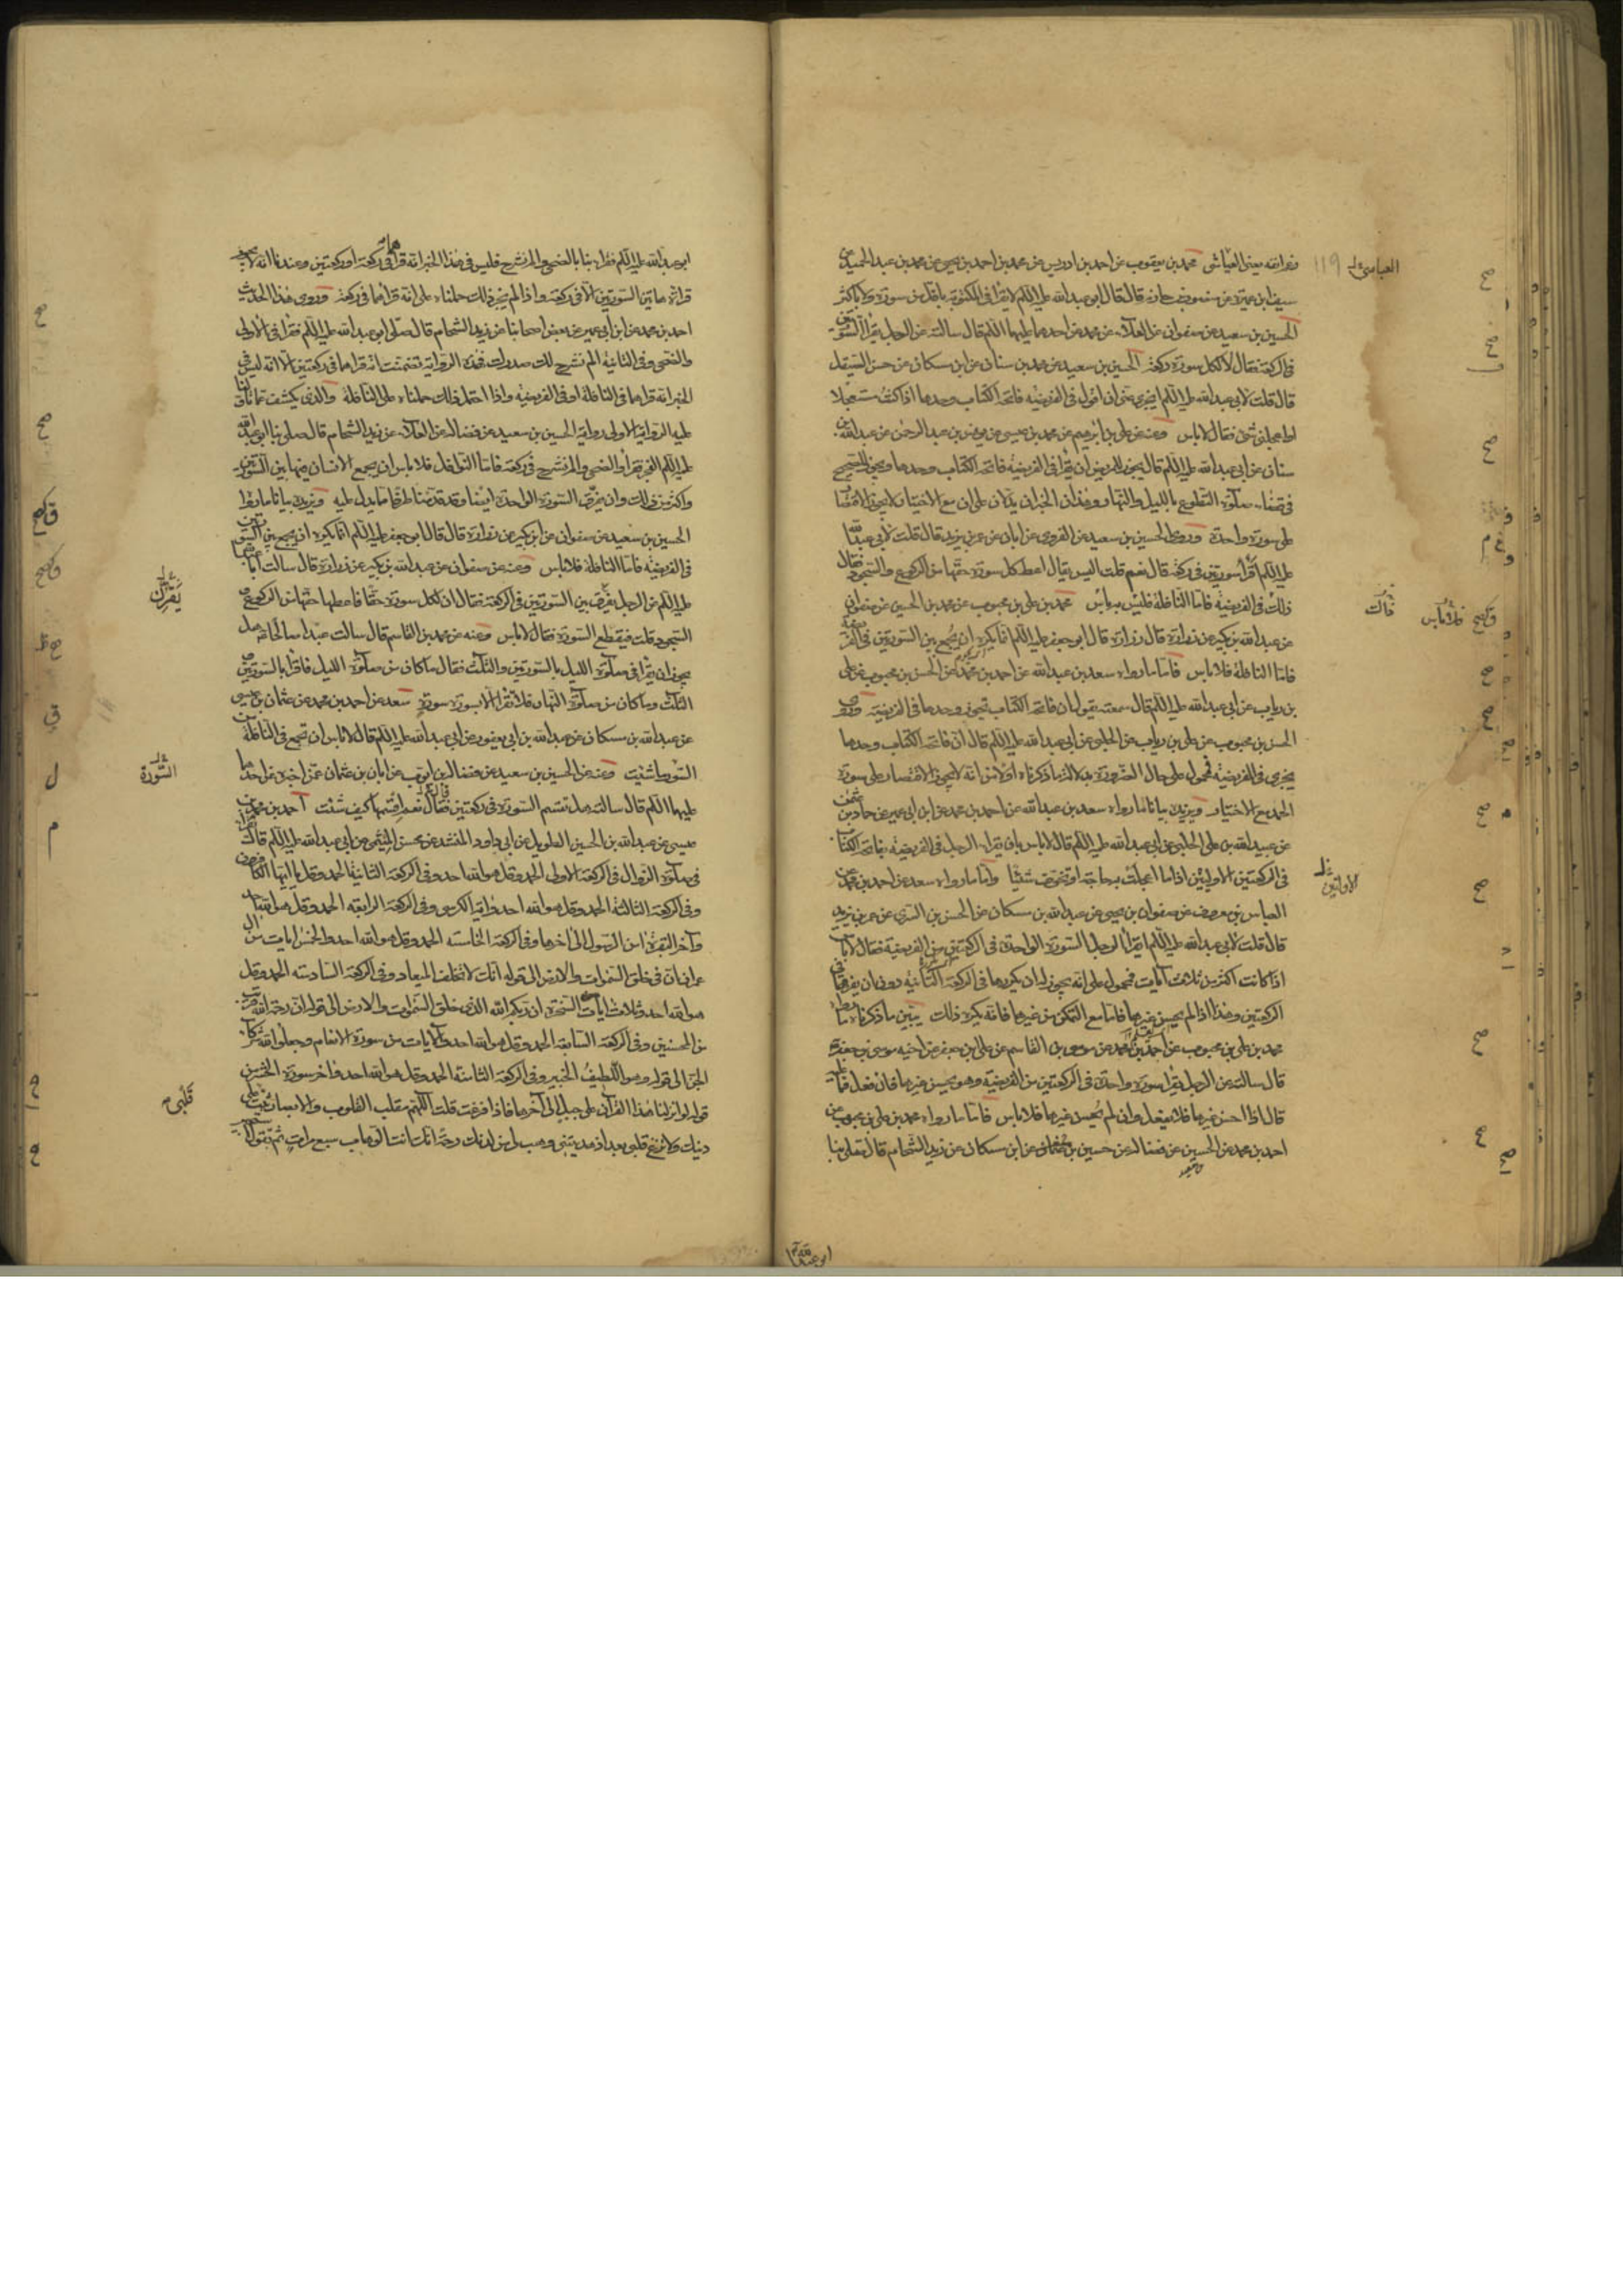 رغم انفه يعنى العياشى محمد بن يعقوب عن احمد بن ادريس عن محمد بن احمد بن يحيى عن محمد بن عبد الحميد عن
سيف بن عميرة عن منصور بن حازم قال قال ابو عبد الله عليه السلم لا تقرأ فى المكتوبة باقل من سورة ولا باكثر
الحسين بن سعيد عن صفوان عن العلاء عن محمد عن احدهما عليهما السلم قال سالته عن الرجل يقرأ السورتين
فى الركعة فقال لا لكل سورة ركعة الحسين بن سعيد عن محمد بن سنان عن ابن مسكان عن حسن الصيقل
قال قلت لابى عبد الله عليه السلم ايجزى عنى ان اقول فى الفريضة فاتحة الكتاب وحدها اذا كنت مستعجلا
او اعجلنى شئ فقال لا باس وعنه عن على بن ابرهيم عن محمد بن عيسى عن يونس بن عبد الرحمن عن عبد الله بن
سنان عن ابى عبد الله عليه السلم قال يجوز للمريض ان يقرأ فى الفريضة فاتحة الكتاب وحدها ويجوز للصحيح
فى قضاء صلوة التطوع بالليل والنهار وهذان الخبران يدلان على ان مع الاختيار لا يجوز الاقتصار
على سورة واحدة وروى الحسين بن سعيد عن القروى عن ابان عن عمر بن يزيد قال قلت لابى عبد الله
عليه السلم أقرأ سورتين فى ركعة قال نعم قلت اليس يقال اعط كل سورة حقها من الركوع والسجود فقال
ذلك فى الفريضة فاما النافلة فليس به باس محمد بن على بن محبوب عن محمد بن الحسين عن صفوان
عن عبد الله بن بكير عن زرارة قال زرارة قال ابو جعفر عليه السلم انما يكره ان يجمع بين السورتين فى الفريضة
فاما النافلة فلا باس فاما ما رواه سعد بن عبد الله عن احمد بن محمد عن الحسن بن محبوب عن على
بن رياب عن ابى عبد الله عليه السلم قال سمعته يقول ان فاتحة الكتاب تجوز وحدها فى الفريضة وروى
الحسن بن محبوب عن على بن رياب عن الحلبى عن ابى عبد الله عليه السلم قال ان فاتحة الكتاب وحدها
يجزى فى الفريضة فمحمول على حال الضرورة بدلالة ما ذكرناه اولا من انه لا يجوز الاقتصار على سورة
الحمد مع الاختيار ويزيده بيانا ما رواه سعد بن عبد الله عن احمد بن محمد عن ابن ابى عمير عن حماد بن عثمن
عن عبيد الله بن على الحلبى عن ابى عبد الله عليه السلم قال لا باس بان يقرأ الرجل فى الفريضة بفاتحة الكتاب
فى الركعتين الاوليين اذا ما اعجلت به حاجة او تخوف شيئا واما ما رواه سعد عن احمد بن محمد عن
العباس بن معروف عن صفوان بن يحيى عن عبد الله بن مسكان عن الحسن بن السرى عن عمر بن يزيد
قال قلت لابى عبد الله عليه السلم ايقرأ الرجل السورة الواحدة فى الركعتين من الفريضة فقال لا باس
اذا كانت اكثر من ثلاث آيات فمحمول على انه يجوز له ان يكررها فى الركعة الثانية دون ان يفرقها فى
الركعتين وهذا اذا لم يحسن غيرها فاما مع التمكن من غيرها فانه يكره ذلك يبين ما ذكرناه ما رواه
محمد بن على بن محبوب عن احمد بن محمد عن موسى بن القاسم عن على بن جعفر عن اخيه موسى بن جعفر
قال سالته عن الرجل يقرا سورة واحدة فى الركعتين من الفريضة وهو يحسن غيرها فان فعل فما عليه
قال اذا احسن غيرها فلا يفعل وان لم يحسن غيرها فلا باس فاما ما رواه محمد بن على بن محبوب عن
احمد بن محمد عن الحسين عن فضالة عن حسين بن عثمان عن ابن مسكان عن زيد الشحام قال صلى بنا
العباسى
119
قالت
فلا باس
الاولتين
ابو عبد الله
ابو عبد الله عليه السلم فقرا بنا بالضحى والم نشرح فليس فى هذا الخبر انه قرأهما فى ركعة او ركعتين وعندنا انه لا يجوز
قراءة هاتين السورتين الا فى ركعة واذا لم يجز ذلك حملناه على انه قرأهما فى ركعة وروى هذا الحديث
احمد بن محمد عن ابن ابى عمير عن بعض اصحابنا عن زيد الشحام قال صلى ابو عبد الله عليه السلم فقرا فى الاولى
والضحى وفى الثانية الم نشرح لك صدرك فهذه الرواية تضمنت انه قراهما فى ركعتين الا انه ليس فى
الخبر انه قراهما فى النافلة او فى الفريضة واذا احتمل ذلك حملناه على النافلة والذى يكشف عما تاولنا
عليه الرواية الاولى رواية الحسين بن سعيد عن فضالة عن العلاء عن زيد الشحام قال صلى بنا ابو عبد الله
عليه السلم الفجر فقرأ والضحى والم نشرح فى ركعة فاما النوافل فلا باس ان يجمع الانسان فيها بين السورتين
واكثر من ذلك وان يفرق السورة الواحدة ايضا وقد قدمنا طرفا مما يدل عليه ويزيده بيانا ما رواه
الحسين بن سعيد عن صفوان عن ابن بكير عن زرارة قال قال ابو جعفر عليه السلم انما يكره ان يجمع بين السورتين
فى الفريضة فاما النافلة فلا باس وعنه عن صفوان عن عبد الله بن بكير عن زرارة قال سالت ابا عبد الله
عليه السلم عن الرجل يقرن بين السورتين فى الركعة فقال ان لكل سورة حقا فاعطها حقها من الركوع و
السجود قلت فيقطع السورة فقال لا باس وعنه عن محمد بن القاسم قال سالت عبدا صالحا هل
يجوز ان يقرأ فى صلوة الليل بالسورتين والثلث فقال ما كان من صلوة الليل فاقرأ بالسورتين و
الثلث وما كان من صلوة النهار فلا تقرأ الا بسورة سورة سعد عن احمد بن محمد عن عثمان بن عيسى
عن عبد الله بن مسكان عن عبد الله بن ابى يعفور عن ابى عبد الله عليه السلم قال لا باس ان تجمع فى النافلة من
السور ما شئت وعنه عن الحسين بن سعيد عن فضالة بن ايوب عن ابان بن عثمان عمن اخبره عن احدهما
عليهما السلم قال سالته هل تقسم السورة فى ركعتين فقال نعم اقسمها كيف شئت احمد بن محمد بن
عيسى عن عبد الله بن الحسين الطويل عن ابى داود المنشد عن محسن الميثمى عن ابى عبد الله عليه السلم قال تقرأ
فى صلوة الزوال فى الركعة الاولى الحمد وقل هو الله احد وفى الركعة الثانية الحمد وقل يا ايها الكافرون
وفى الركعة الثالثة الحمد وقل هو الله احد وآية الكرسى وفى الركعة الرابعة الحمد وقل هو الله احد
وآخر البقرة امن الرسول الى اخرها وفى الركعة الخامسة الحمد وقل هو الله احد والخمس آيات من آل
عمران ان فى خلق السموات والارض الى قوله انك لا تخلف الميعاد وفى الركعة السادسة الحمد وقل
هو الله احد وثلاث ايات السخرة ان ربكم الله الذى خلق السموات والارض الى قوله ان رحمة الله قريب
من المحسنين وفى الركعة السابعة الحمد وقل هو الله احد والآيات من سورة الانعام وجعلوا لله شركاء
الجن الى قوله وهو اللطيف الخبير وفى الركعة الثامنة الحمد وقل هو الله احد وآخر سورة الحشر من
قوله لو انزلنا هذا القرآن على جبل الى آخرها فاذا فرغت قلت اللهم مقلب القلوب والابصار ثبت قلبى على
دينك ولا تزغ قلبى بعد اذ هديتنى وهب لى من لدنك رحمة انك انت الوهاب سبع مرات ثم تقول
يقرن
السورة
قلبى